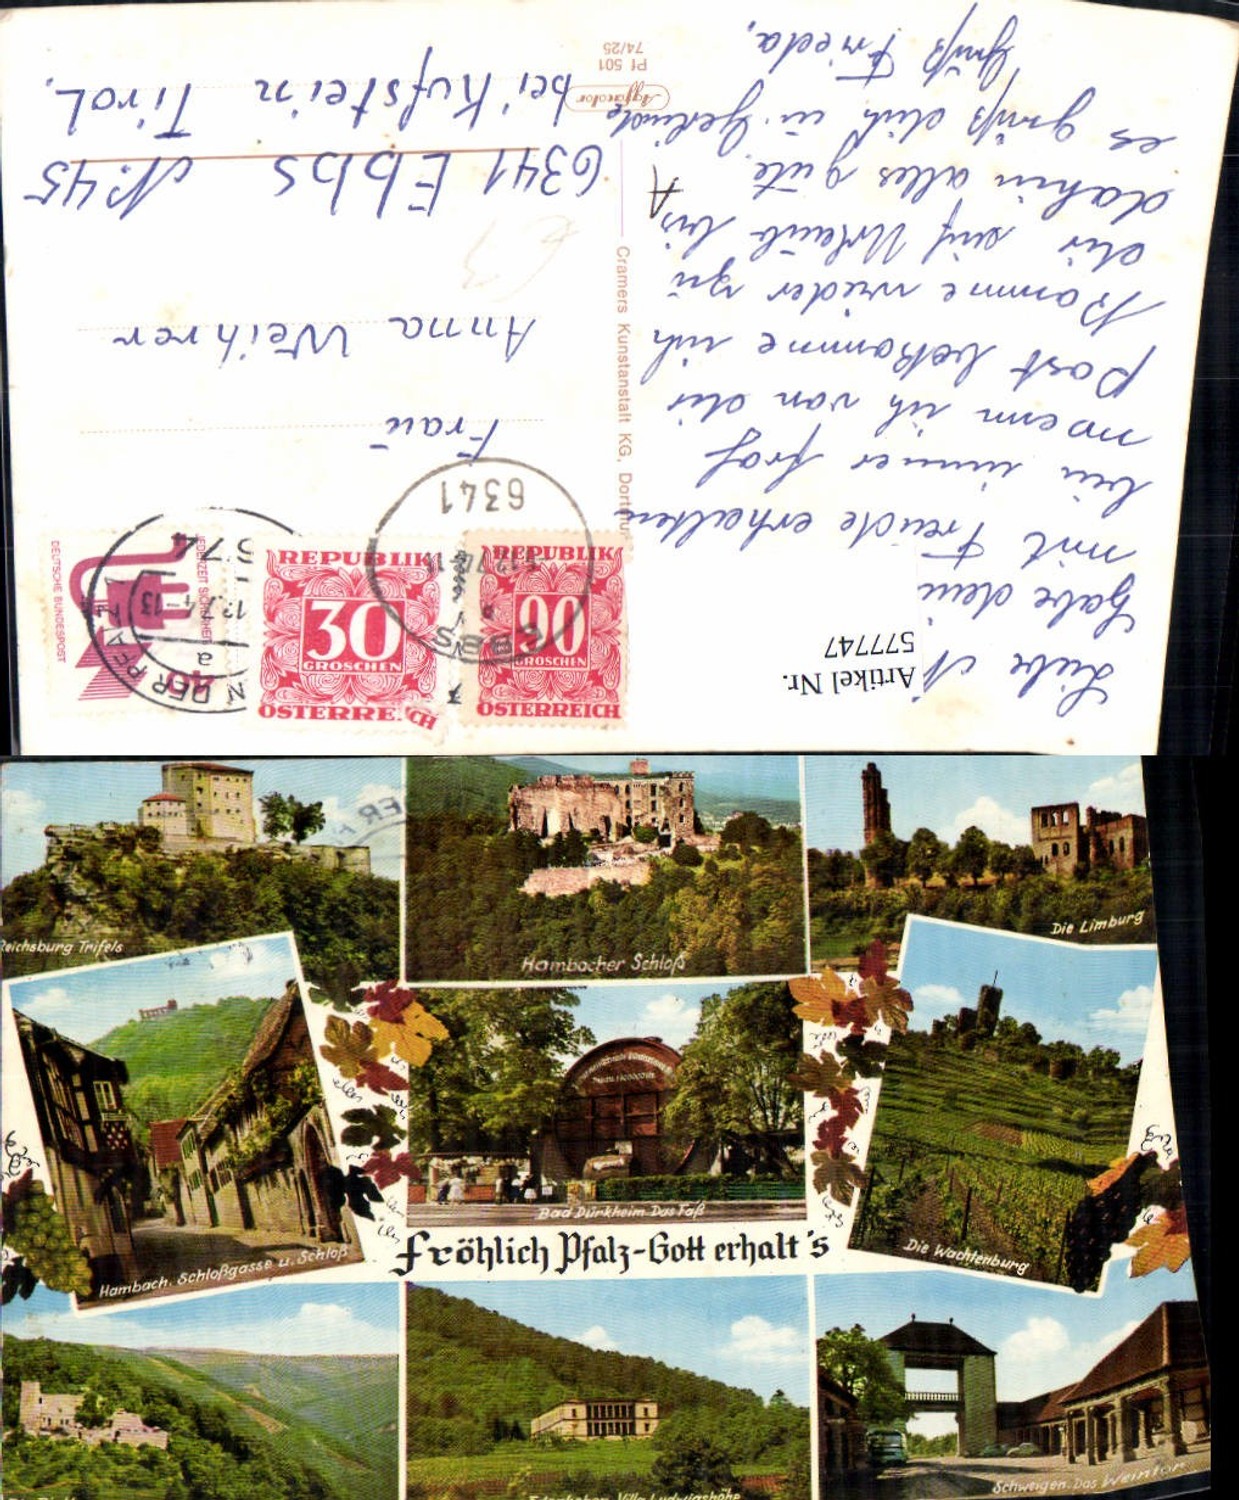 Liebe N
habe dein
mit Freude erhalten
bin immer froh
wenn ich von dir
Post bekomme ich
komme wieder zu
dir auf Urlaub bis
dahin alles gute.
es grüß dich u. Gerlinde
Gruß Frieda.
Artikel Nr.
577747
Cramers Kunstanstalt KG, Dortmu
Agfacolor
Pf 501
74/25
Frau
Anna Weihrer
6341 Ebbs N. 45
bei Kufstein Tirol.
6341
EBBS
REPUBLIK
30
GROSCHEN
ÖSTERREICH
REPUBLIK
90
GROSCHEN
ÖSTERREICH
DEUTSCHE BUNDESPOST
JEDERZEIT SICHERHEIT
40
674
a
DER PFALZ
Reichsburg Trifels
Hambacher Schloß
Die Limburg
Hambach. Schloßgasse u. Schloß
Bad Dürkheim. Das Faß
Die Wachtenburg
Fröhlich Pfalz-Gott erhalt's
Edenkoben. Villa Ludwigshöhe
Schweigen. Das Weintor